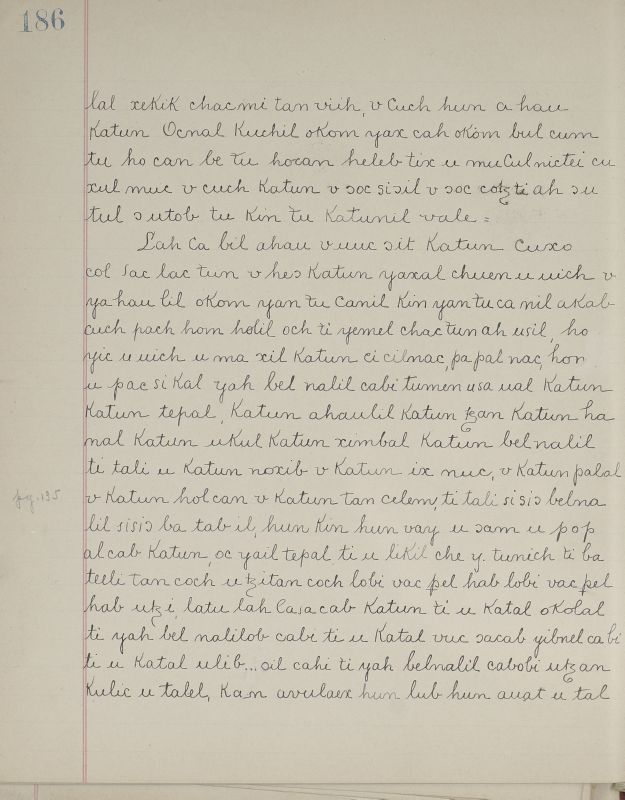 186
lal xekik chacmi tan vich, v cuch hun a hau
Katun Ocnal Kuchil okom yax cah okom bul cum
tu ho can be tu hocan heleb tix u muCulnictei cu
xul muc v cuch Katun v soc sisil v soc cotz ti ah su
tul sutob tu Kin tu Katunil vale =
Lah Ca bil ahau v uuc sit Katun Cuxo
col Sac lac tun v hes Katun yaxal chuen u uich v
ya hau lil okom yan tu Canil Kin yan tu ca nil akab
cuch pach hom holil och ti yemel chac tun ah usil, ho
yic u uich u ma xil Katun ci cilnac, pa pal nac, hon
u pac si Kal yah bel nalil cabi tumen usa ual Katun
Katun tepal, Katun ahaulil Katun tzan Katun ha
nal Katun ukul Katun ximbal Katun belnalil
ti tali u Katun noxib v Katun ix nuc, v Katun palal
pg. 135
v Katun holcan v Katun tan celem, ti tali sisis belna
lil sisis ba tab il, hun Kin hun vay u sam u pop
al cab Katun, oc yail tepal ti u likil che y. tunich ti ba
teeli tan coch utzitan coch lobi vac pel hab lobi vac pel
hab utzi, latu lah Casacab Katun ti u Katal okolal
ti yah bel nalilob cabi ti u Katal vuc sacab yibnel cabi
ti u Katal ulib...oil cahi ti yah belnalil cabobi utzan
Kulic u talel, Kan avulaex hun lub hun auat u tal